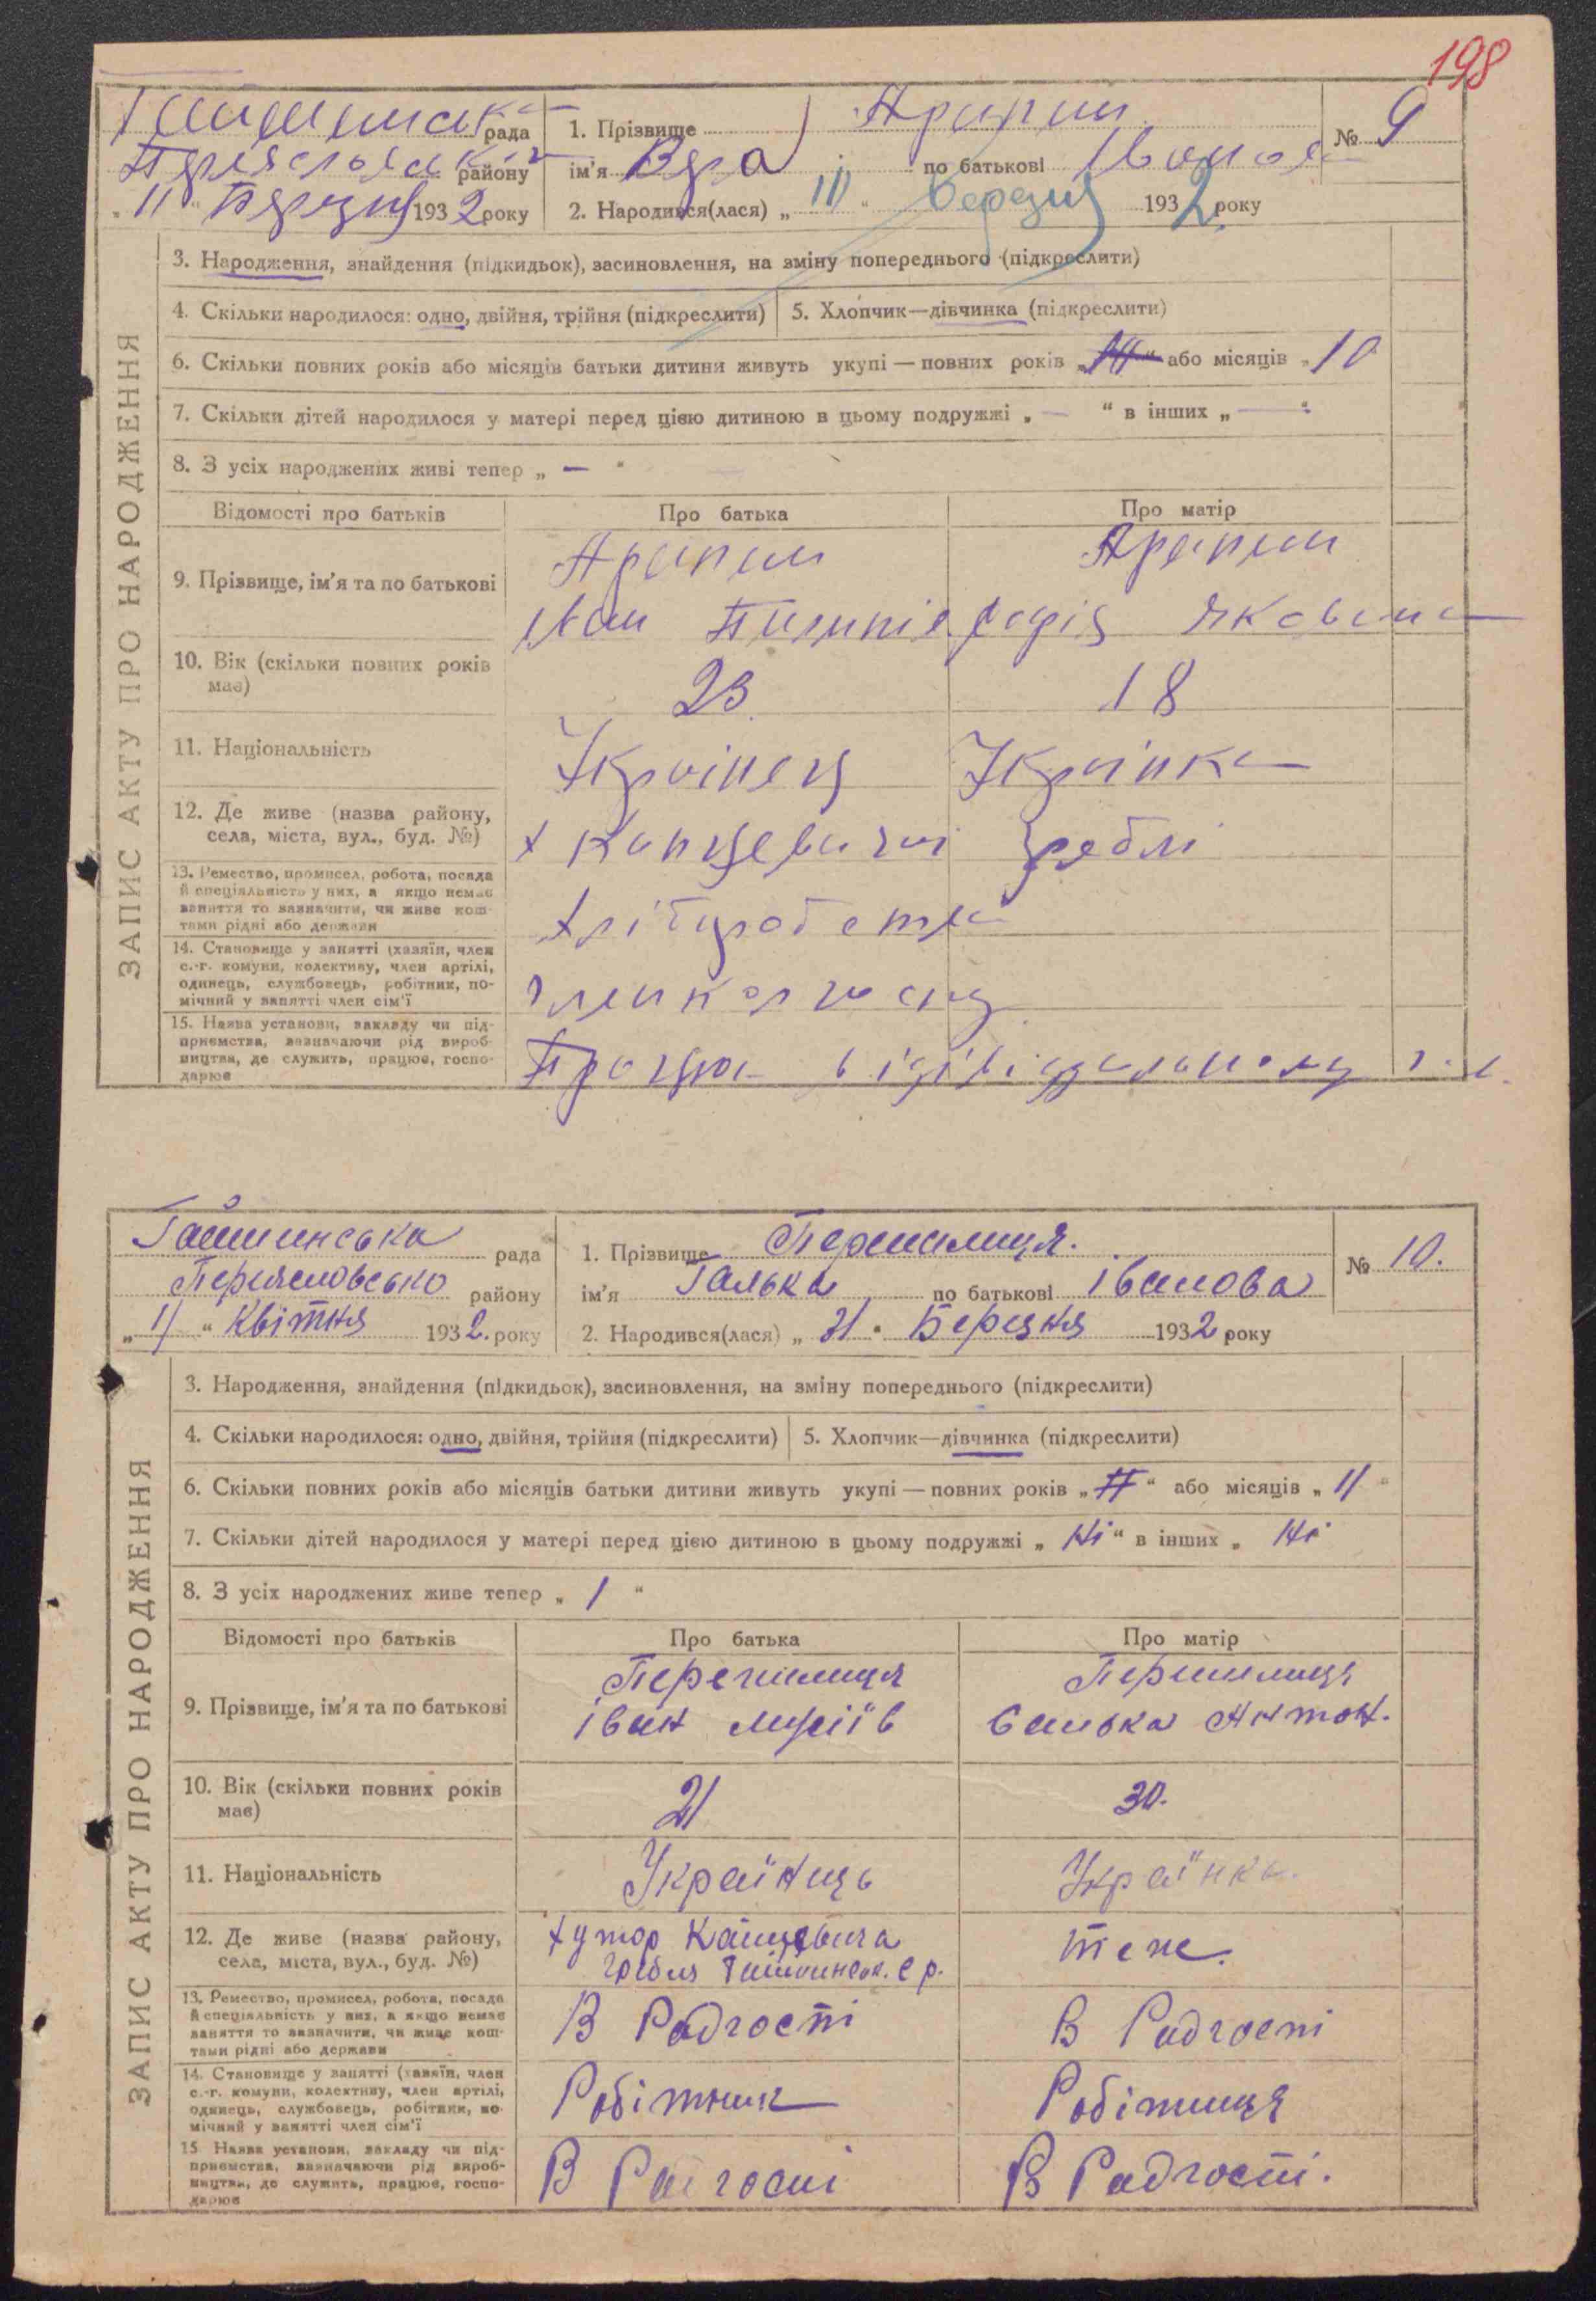 198
рада
1. Прізвище
№ 9
району
ім'я Вера
по батькові Іванов
"11" Березня 1932 року
2. Народився(лася) „III“ березня 1932 року
ЗАПИС АКТУ ПРО НАРОДЖЕННЯ
3. Народження, знайдення (підкидьок), засиновлення, на зміну попереднього (підкреслити)
4. Скільки народилося: одно, двійня, трійня (підкреслити)
5. Хлопчик—дівчинка (підкреслити)
6. Скільки повних років або місяців батьки дитини живуть укупі — повних років „ “ або місяців „10
7. Скільки дітей народилося у матері перед цією дитиною в цьому подружжі „ — “ в інших „ — “
8. З усіх народжених живі тепер „ — “
Відомості про батьків
Про батька
Про матір
9. Прізвище, ім'я та по батькові
Іван Пилипів
Софія Яковина
10. Вік (скільки повних років має)
23
18
11. Національність
Українец
Українка
12. Де живе (назва району, села, міста, вул., буд. №)
х Канцевичи
греблі
13. Ремество, промисел, робота, посада й спеціяльність у них, а якщо немає заняття то зазначити, чи живе коштами рідні або держави
14. Становище у занятті (хазяїн, член с.-г. комуни, колективу, член артілі, одинець, службовець, робітник, помічний у занятті член сім'ї
член колгоспу
15. Назва установи, закладу чи підприємства, зазначаючи рід виробництва, де служить, працює, господарює
Працює в
Гайшинська рада
1. Прізвище Перешилиця.
№ 10.
Переяславсько району
ім'я Галька
по батькові Іванова
„11“ Квітня 1932. року
2. Народився(лася) „21“ Березня 1932 року
ЗАПИС АКТУ ПРО НАРОДЖЕННЯ
3. Народження, знайдення (підкидьок), засиновлення, на зміну попереднього (підкреслити)
4. Скільки народилося: одно, двійня, трійня (підкреслити)
5. Хлопчик—дівчинка (підкреслити)
6. Скільки повних років або місяців батьки дитини живуть укупі — повних років „ “ або місяців „11“
7. Скільки дітей народилося у матері перед цією дитиною в цьому подружжі „Ні“ в інших „ Ні
8. З усіх народжених живе тепер „1“
Відомості про батьків
Про батька
Про матір
9. Прізвище, ім'я та по батькові
Перешилиця
Іван Мусіїв
Перешилиця
Ганька Антон.
10. Вік (скільки повних років має)
21
30.
11. Національність
Українць
Українка.
12. Де живе (назва району, села, міста, вул., буд. №)
хутор Канцевича
Гребля Гайшинськ. с р.
теж.
13. Ремество, промисел, робота, посада й спеціяльність у них, а якщо немає заняття то зазначити, чи живе коштами рідні або держави
В Радгоспі
В Радгоспі
14. Становище у занятті (хазяїн, член с.-г. комуни, колективу, член артілі, одинець, службовець, робітник, помічний у занятті член сім'ї
Робітник
Робітниця
15 Назва установи, закладу чи підприємства, зазначаючи рід виробництва, де служить, працює, господарює
В Радгоспі
В Радгоспі.